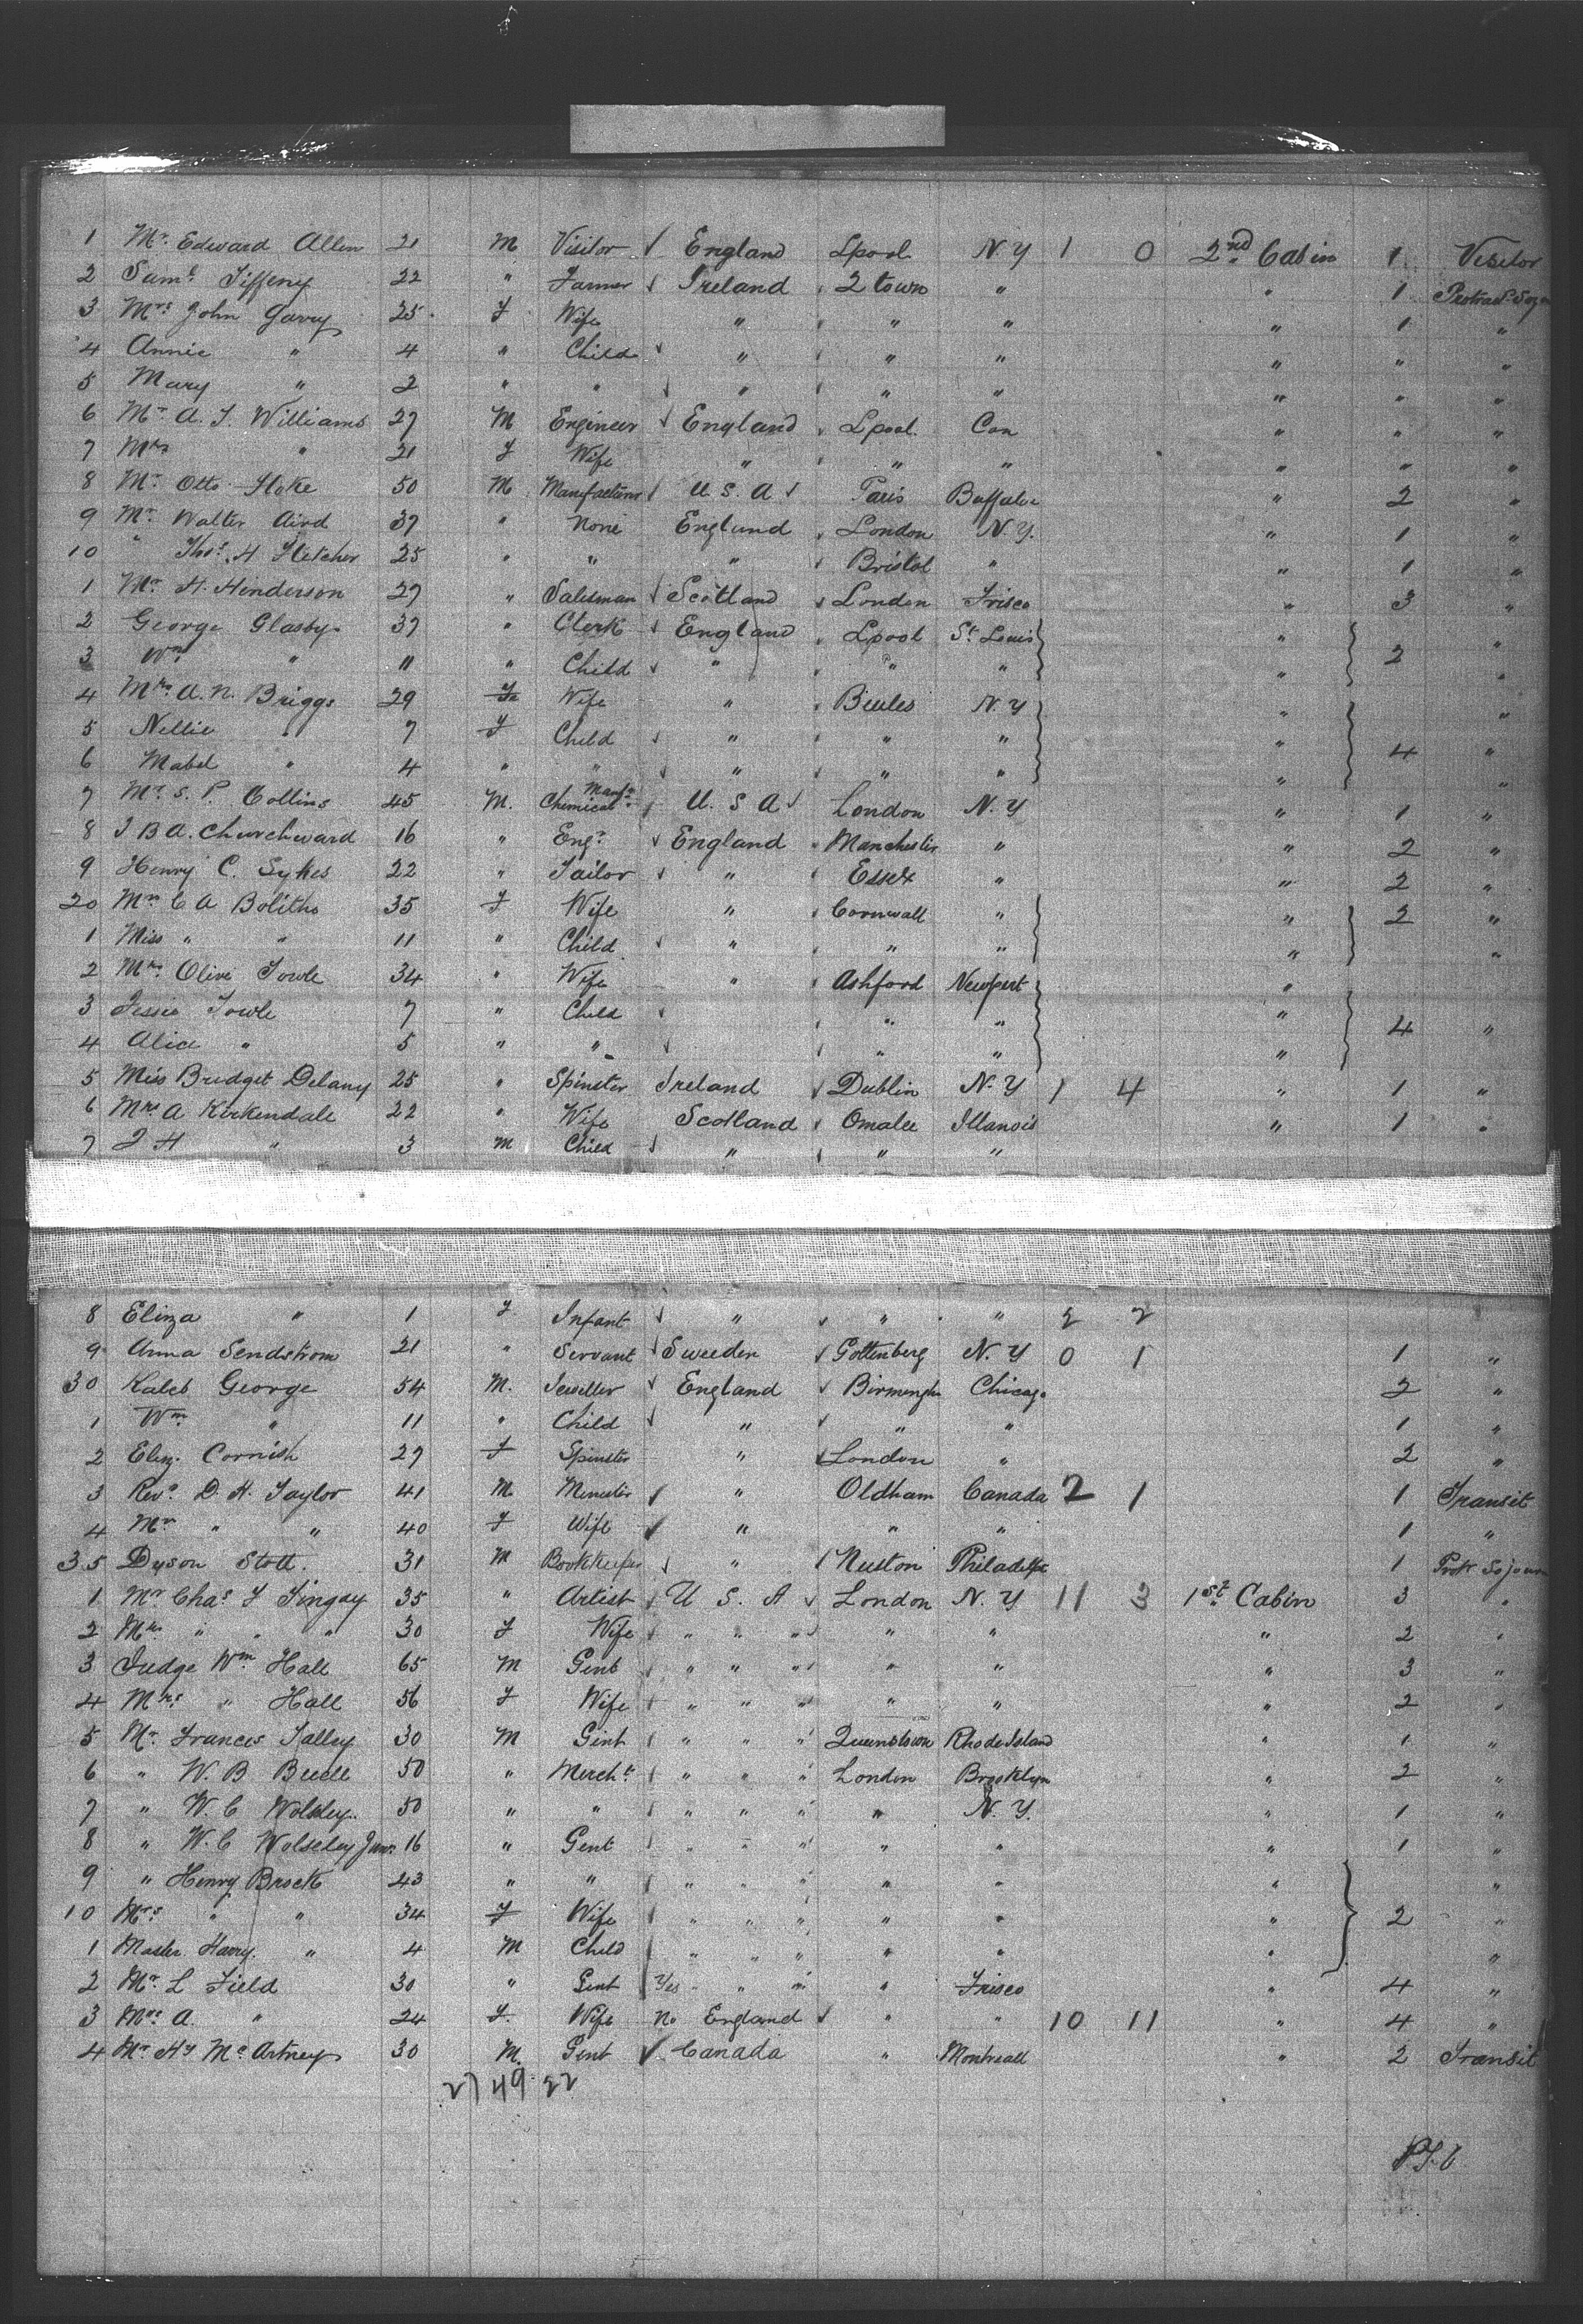 1 Mr. Edward Allen 21 M Visitor England Lpool N Y 1 0 2nd Cabin 1 Visitor
2 Saml. Tiffeny 22 " Farmer Ireland 2 town " " 1
3 Mrs John Garry 25 F Wife " " " " 1 "
4 Annie " 4 " Child " " " " " "
5 Mary " 2 " " " " " " " "
6 Mr A. J. Williams 27 M Engineer England Lpool. Can " " "
7 Mrs " 21 F Wife " " " " " "
8 Mr. Otto Hoke 50 M U. S. A Paris Buffalo " 2 "
9 Mr. Walter Aird 37 " None England London N. Y. " 1 "
10 " Thos. H Fletcher 25 " " " Bristol " " 1 "
1 Mr. H. Hinderson 27 " Salesman Scotland London Frisco " 3 "
2 George Glasby 37 " Clerk England Lpool St. Louis " 2 "
3 Wm " 11 " Child " " " " "
4 Mrs. A. N. Briggs 29 F Wife " N. Y " "
5 Nellie " 7 F Child " " " " 4 "
6 Mabel " 4 " " " " " " "
7 Mr. S. P. Collins 45 M. Chemical Manfr. U. S A London N. Y " 1 "
8 J B A. Churchward 16 " Engr. England Manchester " " 2 "
9 Henry C. Sykes 22 " Tailor " Essex " " 2 "
20 Mrs C A Bolitho 35 F Wife " Cornwall " " 2 "
1 Miss " " 11 " Child " " " " "
2 Mrs. Olive Towle 34 " Wife " Ashford Newport "
3 Jessie Towle 7 " Child " " " 4 "
4 Alice " 5 " " " " "
5 Miss Bridget Delany 25 " Spinster Ireland Dublin N. Y 1 4 " 1 "
6 Mrs A Kirkendale 22 " Wife Scotland Omalee Illanois " 1 "
7 J H " 3 M Child " " "
8 Eliza " 1 F Infant " " " 2 2
9 Anna Sendstrom 21 " Servant Sweeden Gottenberg N. Y 0 1 1 "
30 Kaleb George 54 M. Jeweller England Birmingh Chicago 2 "
1 Wm " 11 " Child " " " 1 "
2 Eliz. Cornish 27 F Spinster " London " 2 "
3 Revd. D. H. Taylor 41 M Minister " Oldham Canada 2 1 1 Transit
4 Mrs " " 40 F Wife " " " 1 "
35 Dyson Stott. 31 M Bookkeeper " Philadelpa 1 Protr Sojourn
1 Mr Chas F Tingay 35 " Artist U S. A London N. Y 11 3 1st. Cabin 3 "
2 Mrs. " " " 30 F Wife " " " " " " 2 "
3 Judge Wm Hall 65 M Gent " " " " " " 3 "
4 Mrs " Hall 56 F Wife " " " " " " 2 "
5 Mr. Frances Talley 30 M Gent " " " Queenstown Rhode Island " 1 "
6 " W. B Buell 50 " Mercht. " " " London Brooklyn " 2 "
7 " W. C Wolsley. 50 " " " " " " N. Y. " 1 "
8 " W. C Wolseley Junr. 16 " Gent " " " " " " 1 "
9 " Henry Brock 43 " " " " " " " " "
10 Mrs " " 34 F Wife " " " " " " 2 "
1 Master Harry. " 4 M Child " " " " " " "
2 Mr. L Field 30 " Gent Yes " " " " Frisco " 4 "
3 Mrs. A. " 24 F. Wife No England " " 10 11 " 4 "
4 Mr. Hy McArtney 30 M. Gent Canada " Montreall " 2 Transit
27 49 22